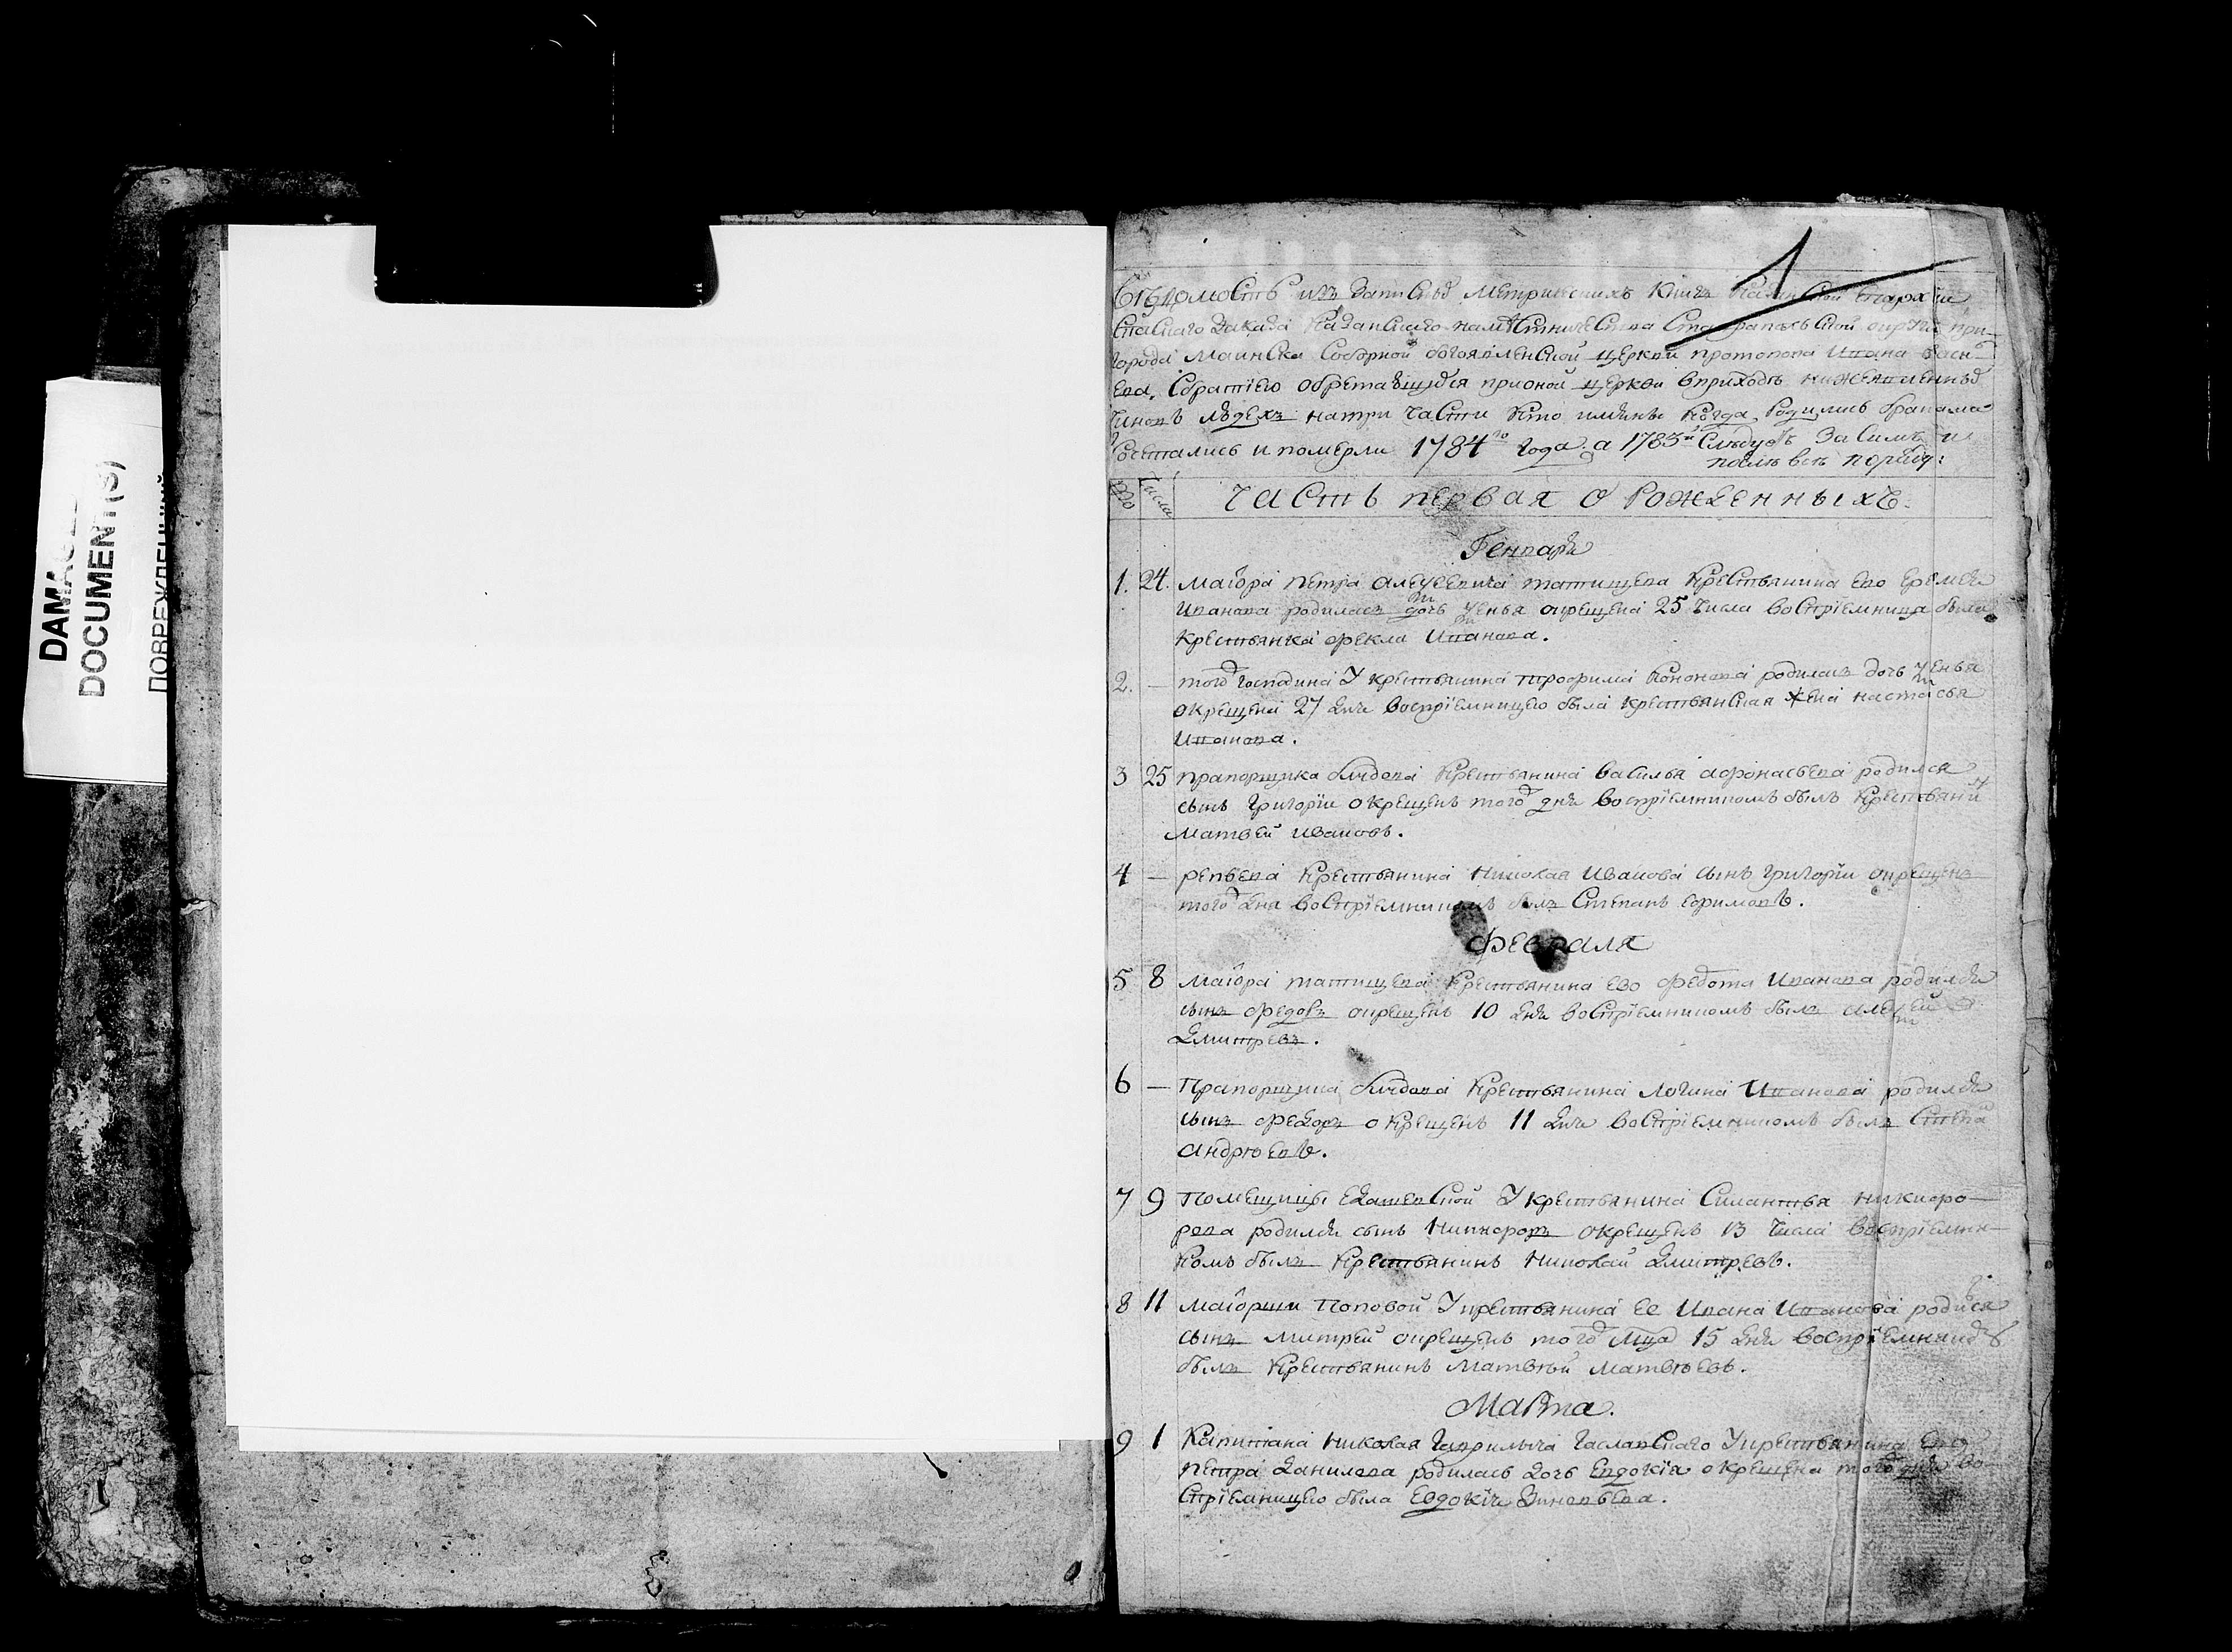 DAMAGED
DOCUMENT(S)
ПОВРЕЖДЕННЫЙ
1
Ведомость из записных метрических книг Казанской епархии
Спаского заказа Казанскаго наместничества Ставрапольской округи при-
города Маинска Соборной богоявленской церкви протопопа Ивана
Собратиею обретающихсяприоной церкви вприходе нижеявленных
чинов людех натри части кто имяны когда родились бракама
сочетались и померли 1784го года а 1785й Следует За Симъ и
после всех
число
часть первая о рожденныхъ.
Генваря
1. 24. маиора петра алексеевича татищева крестьянина ево еремея
Иванова родилась дочь окрещена 25 числа восприемница была
крестьянка фекла Иванова.
2. — того господина у крестьянина трофима Кононова родилась дочь
окрещена 27 дня восприемницею была крестьянская жена настасья
Иванова.
3 25 прапорщика крестьянина василья афонасьева родился
сынъ григории окрещенъ того дня восприемникомъ былъ крестьянин
матвей ивановъ.
4 — репьева крестьянина николая иванова сынъ григории окрещенъ
того дня восприемникомъ былъ Степанъ ефимовъ.
февраля
5 8 маиора татищева крестьянина ево федота Иванова родился
сынъ федоръ окрещенъ 10 дня восприемникомъ былъ алексей
Дмитревъ.
6 — Прапорщика крестьянина логина Иванова родился
сынъ федоръ окрещенъ 11 дня восприемникомъ былъ Степан
андрѣевъ.
7 9 помещицы у крестьянина Силантья никифо-
рова родился сынъ никифоръ окрещенъ 13 числа восприемни-
комъ былъ крестьянинъ николай Дмитревъ.
8 11 маиорши поповой у крестьянина ее Ивана Иванова родился
сынъ митрей окрещенъ того мца 15 дня восприемникомъ
былъ крестьянинъ матвѣй матвѣевъ.
Марта.
9 1 Капитана николая гаврилыча у крестьянина ево
петра Данилова родилась дочь евдокия окрещена того дня во-
сприемницею была евдокия Зиновьева.